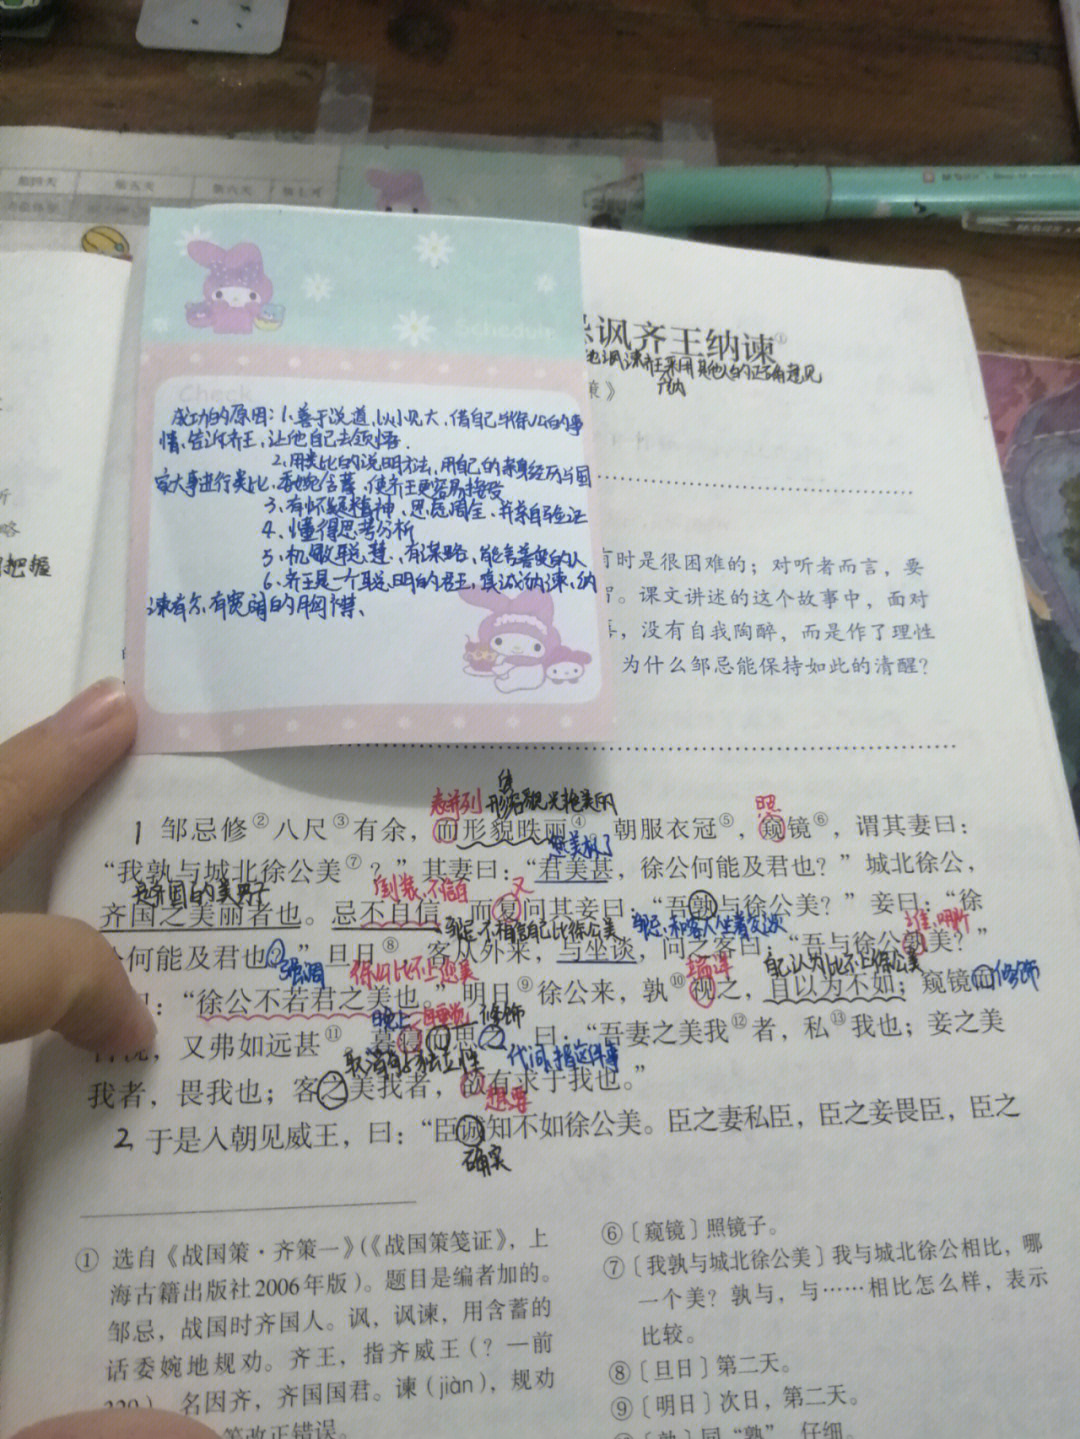 讽齐王纳谏①
讽谏齐王采用其他人的正确意见
策》
Schedule
Check
成功的原因：1、善于说道，以小见大，借自己与徐公的事
情，告诉齐王，让他自己去领悟.
2、用类比的说明方法，用自己的亲身经历与国
家大事进行类比、委婉含蓄，使齐王更容易接受
3、有怀疑精神，思虑周全、并亲自验证
4、懂得思考分析
5、机敏聪慧、有谋略、能言善变的人
6、齐王是一个聪明的君王，真诚纳谏、纳
谏有尔，有宽阔的胸襟、
把握
略
有时是很困难的；对听者而言，要
。课文讲述的这个故事中，面对
，没有自我陶醉，而是作了理性
为什么邹忌能保持如此的清醒？
表并列
照
1 邹忌修②八尺③有余，而形貌昳丽④。朝服衣冠⑤，窥镜⑥，谓其妻曰：
您美极了
“我孰与城北徐公美⑦？”其妻曰：“君美甚，徐公何能及君也？”城北徐公，
是齐国的美男子
倒装、不信自
又
齐国之美丽者也。忌不自信，而复问其妾曰：“吾孰与徐公美？”妾曰：“徐
邹忌不相信自己比徐公美
邹忌和客人坐着交谈
谁，哪个
何能及君也？”旦日⑧，客从外来，与坐谈，问之客曰：“吾与徐公孰美？”
强调
徐公比不上您美
端详
自己认为比不上徐公美
：“徐公不若君之美也。”明日⑨徐公来，孰⑩视之，自以为不如；窥镜而
修饰
晚上
修饰
，又弗如远甚⑪。暮寝而思之，曰：“吾妻之美我⑫者，私⑬我也；妾之美
取消句子独立性
代词，指这件事
我者，畏我也；客之美我者，欲有求于我也。”
想要
2 于是入朝见威王，曰：“臣诚知不如徐公美。臣之妻私臣，臣之妾畏臣，臣之
确实
① 选自《战国策·齐策一》（《战国策笺证》，上
海古籍出版社2006年版）。题目是编者加的。
邹忌，战国时齐国人。讽，讽谏，用含蓄的
话委婉地规劝。齐王，指齐威王（？—前
320），名因齐，齐国国君。谏（jiàn），规劝
改正错误。
⑥〔窥镜〕照镜子。
⑦〔我孰与城北徐公美〕我与城北徐公相比，哪
一个美？孰与，与……相比怎么样，表示
比较。
⑧〔旦日〕第二天。
⑨〔明日〕次日，第二天。
〔孰〕同“熟”，仔细。